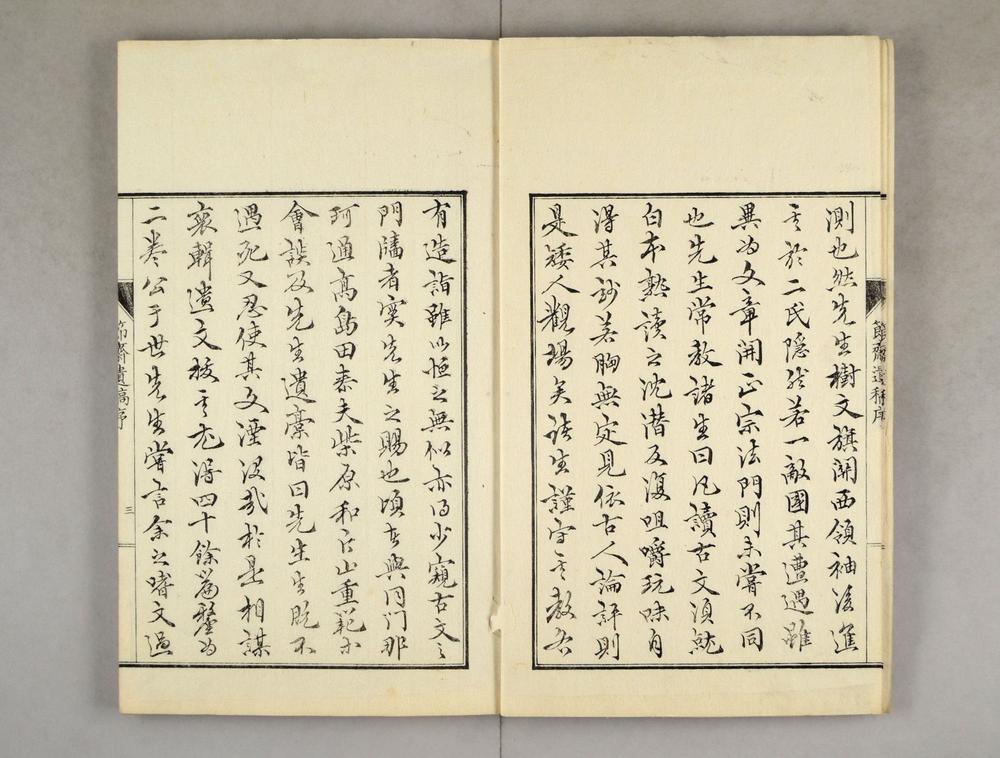 測也然先生樹文旗関西領袖後進
其於二氏隠然若一敵國其遭遇雖
異為文章開正宗法門則未嘗不同
也先生常教諸生曰凡讀古文須就
白本熟讀之沈潜反復咀嚼玩味自
得其妙若胸無定見依古人論評則
是矮人觀場矣諸生謹守其教各
有造詣雖以恒之無似亦得少窺古文之
門牆者実先生之賜也頃者與同門那
珂通高島田泰夫柴原和 山重範等
會談及先生遺稾皆曰先生生既不
遇死又忍使其文湮没哉於是相謀
裒輯遺文校其尤得四十餘篇釐為
二巻公于世先生嘗言余之嗜文過
節齋遺稿序
節齋遺稿序
三